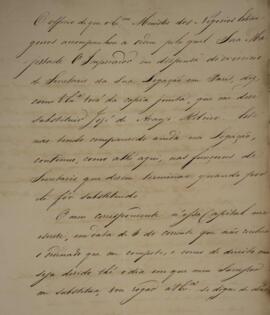 O officio de que o Ex.mo Ministro dos Negocios Estran
geiros acompanhou a ordem pela qual Sua Ma
gestade O Imperador me dispensa do exercicio
de Secretario da Sua Legação em Paris, diz,
como V. Ex.ª verá da copia junta, que me deve
substituir José de Araujo Ribeiro.
não tendo comparecido ainda na Legação,
continúo, como até aqui, nas funções de
Secretario que devem terminar quando por
elle for substituido.
O meu correspondente n'essa Capital me
escreve, em data de 6 do corrente que não
o ordenado que me compete, e como de direito me
seja devido até o dia em que meu Successor
me substitua, vou rogar a V. Ex.ª se digne de